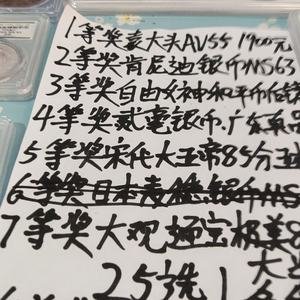 1等奖袁大头AV55 1900元
2等奖肯尼迪银币MS63
3等奖自由女神和平币后
4等奖贰毫银币广东
5等奖宋代大五帝85分
6等奖日本 银币MS
7等奖大观通宝极美8
大
25选1